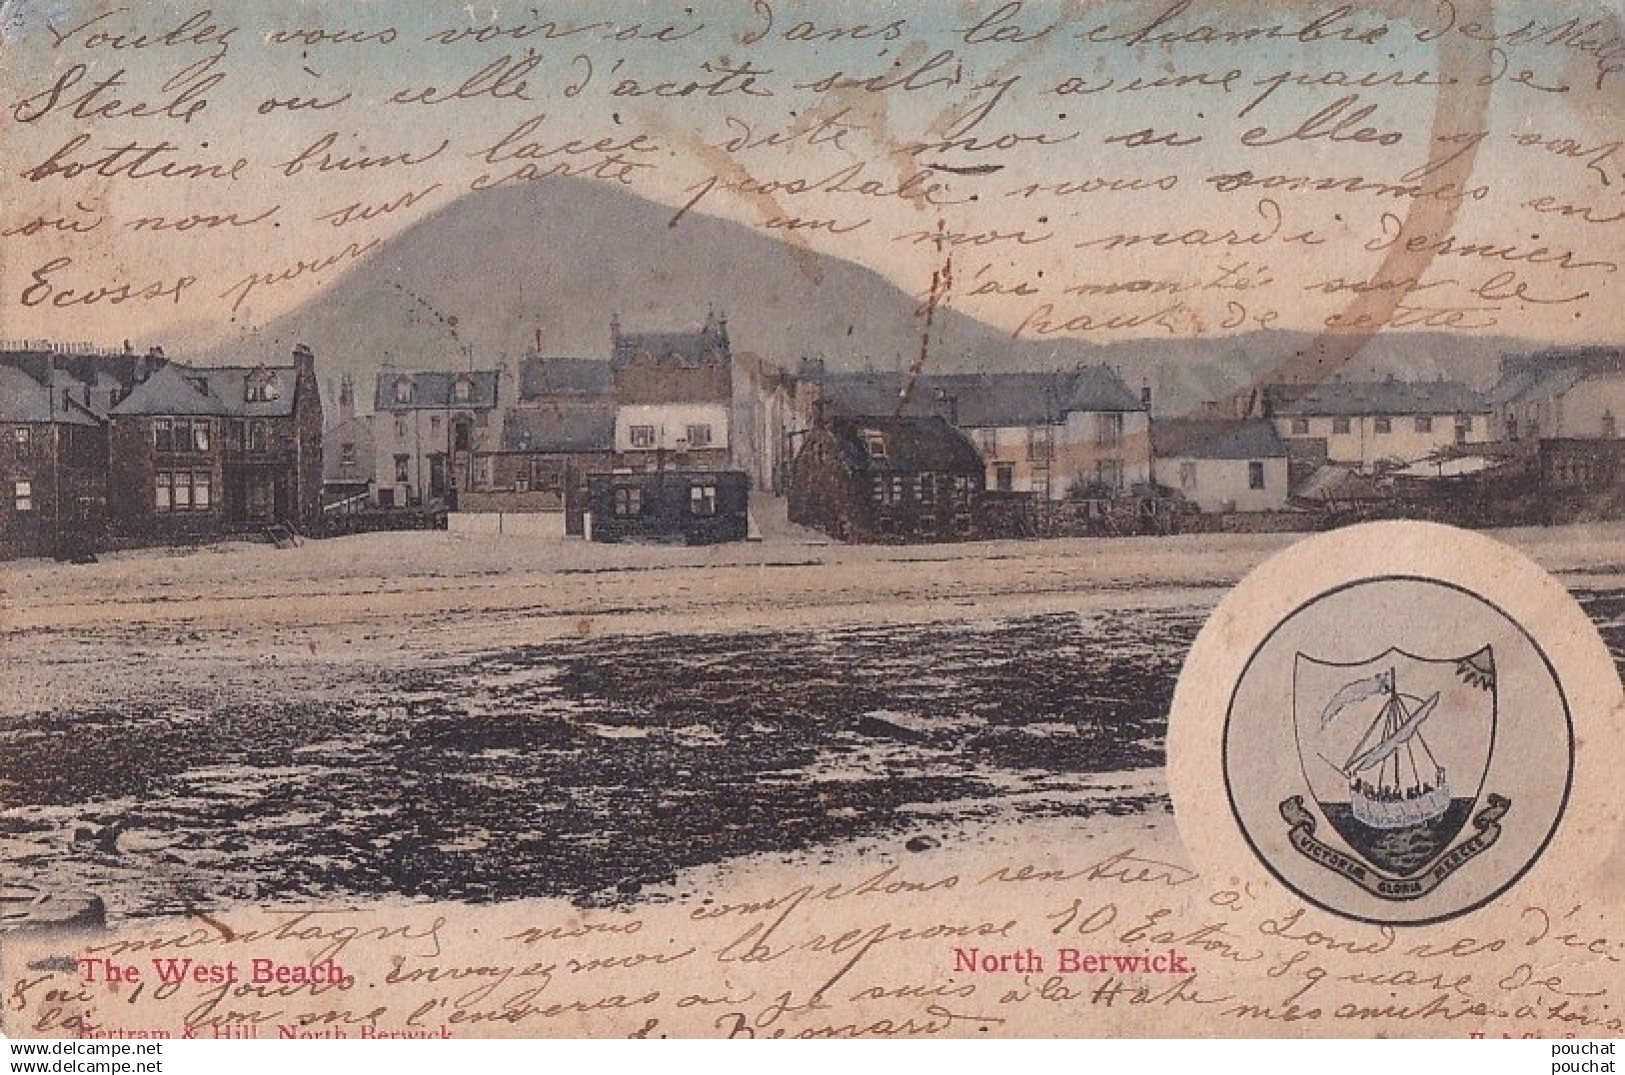 Voulez vous voir si dans la chambre de Mlle
Steele où celle d'acôte s'il y a une paire de
bottine brun lacée. dite moi si elles y sont
où non. sur carte postale. nous sommes en
Ecosse pour un moi mardi dernier
j'ai monté sur le
haut de cette
montagne. nous comptons rentier à Londres d'ici
là 10 jours. envoyez moi la reponse 10 Euston Square de
là on me l'enveras où je suis à la Hate mes amitiés à tois
E. Besnard.
The West Beach. North Berwick.
Bertram & Hill, North Berwick
VICTORIÆ GLORIA MERCES
pouchat
pouchat
pouchat
pouchat